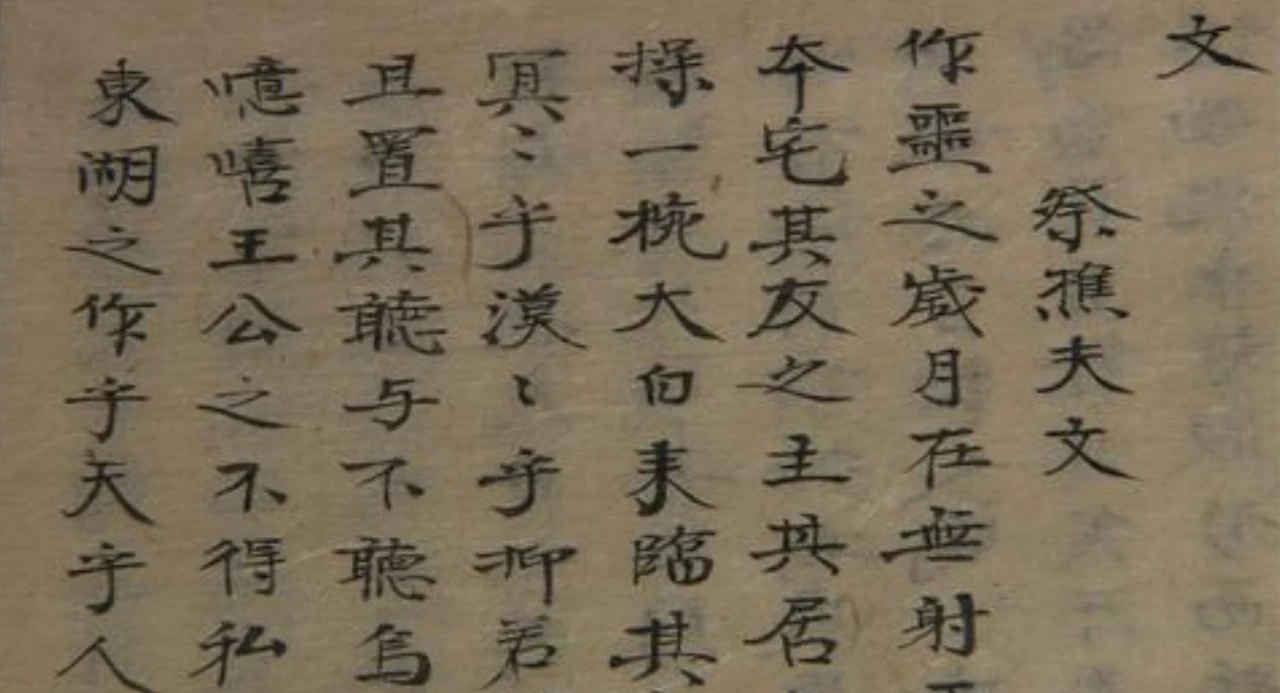 文
祭樵夫文
作噩之歲月在無射
夲宅其友之主其居
操一椀大白来臨其
冥〻乎漠〻乎抑若
且置其聽与不聽烏
噫嘻王公之不得私
東湖之作乎天乎人